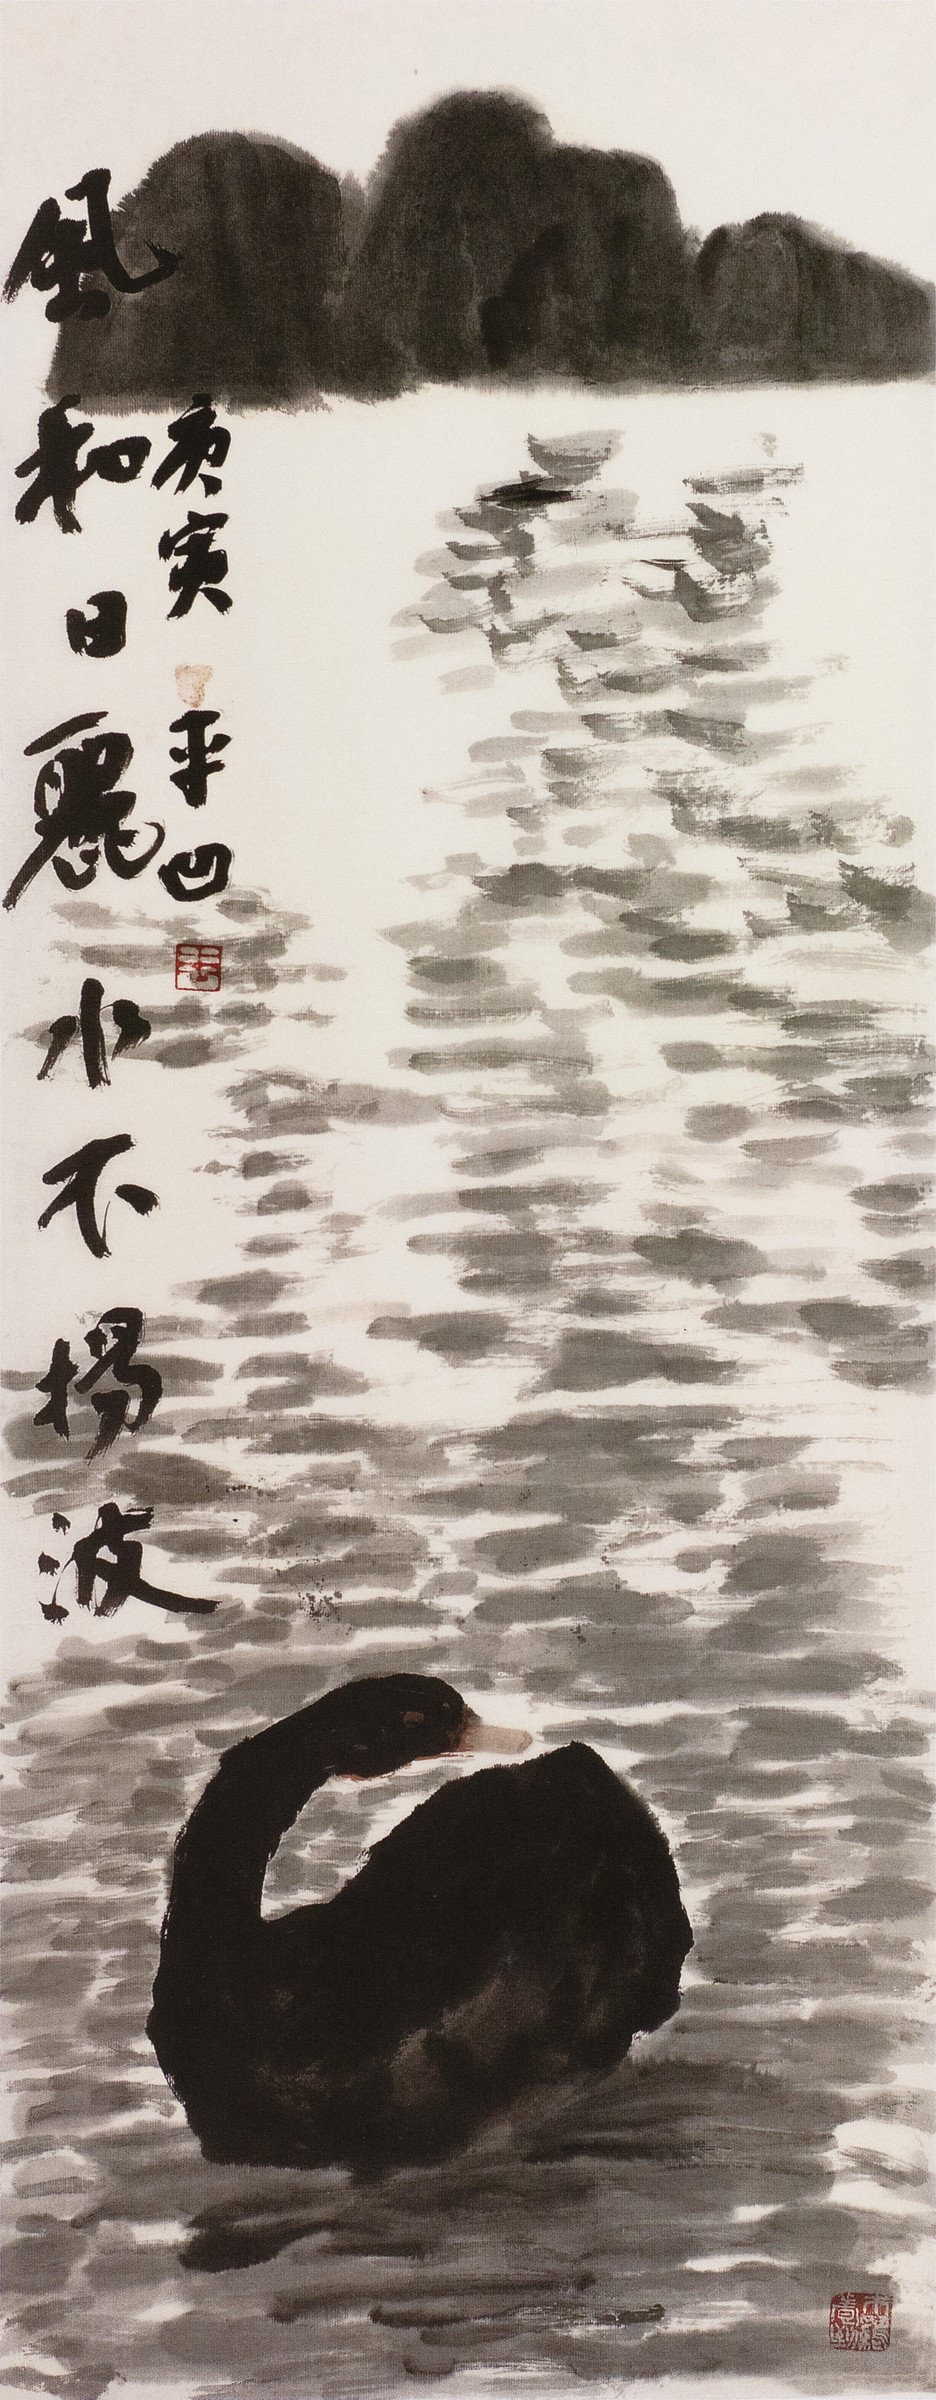 風和日麗水不揚波
庚寅 平凹